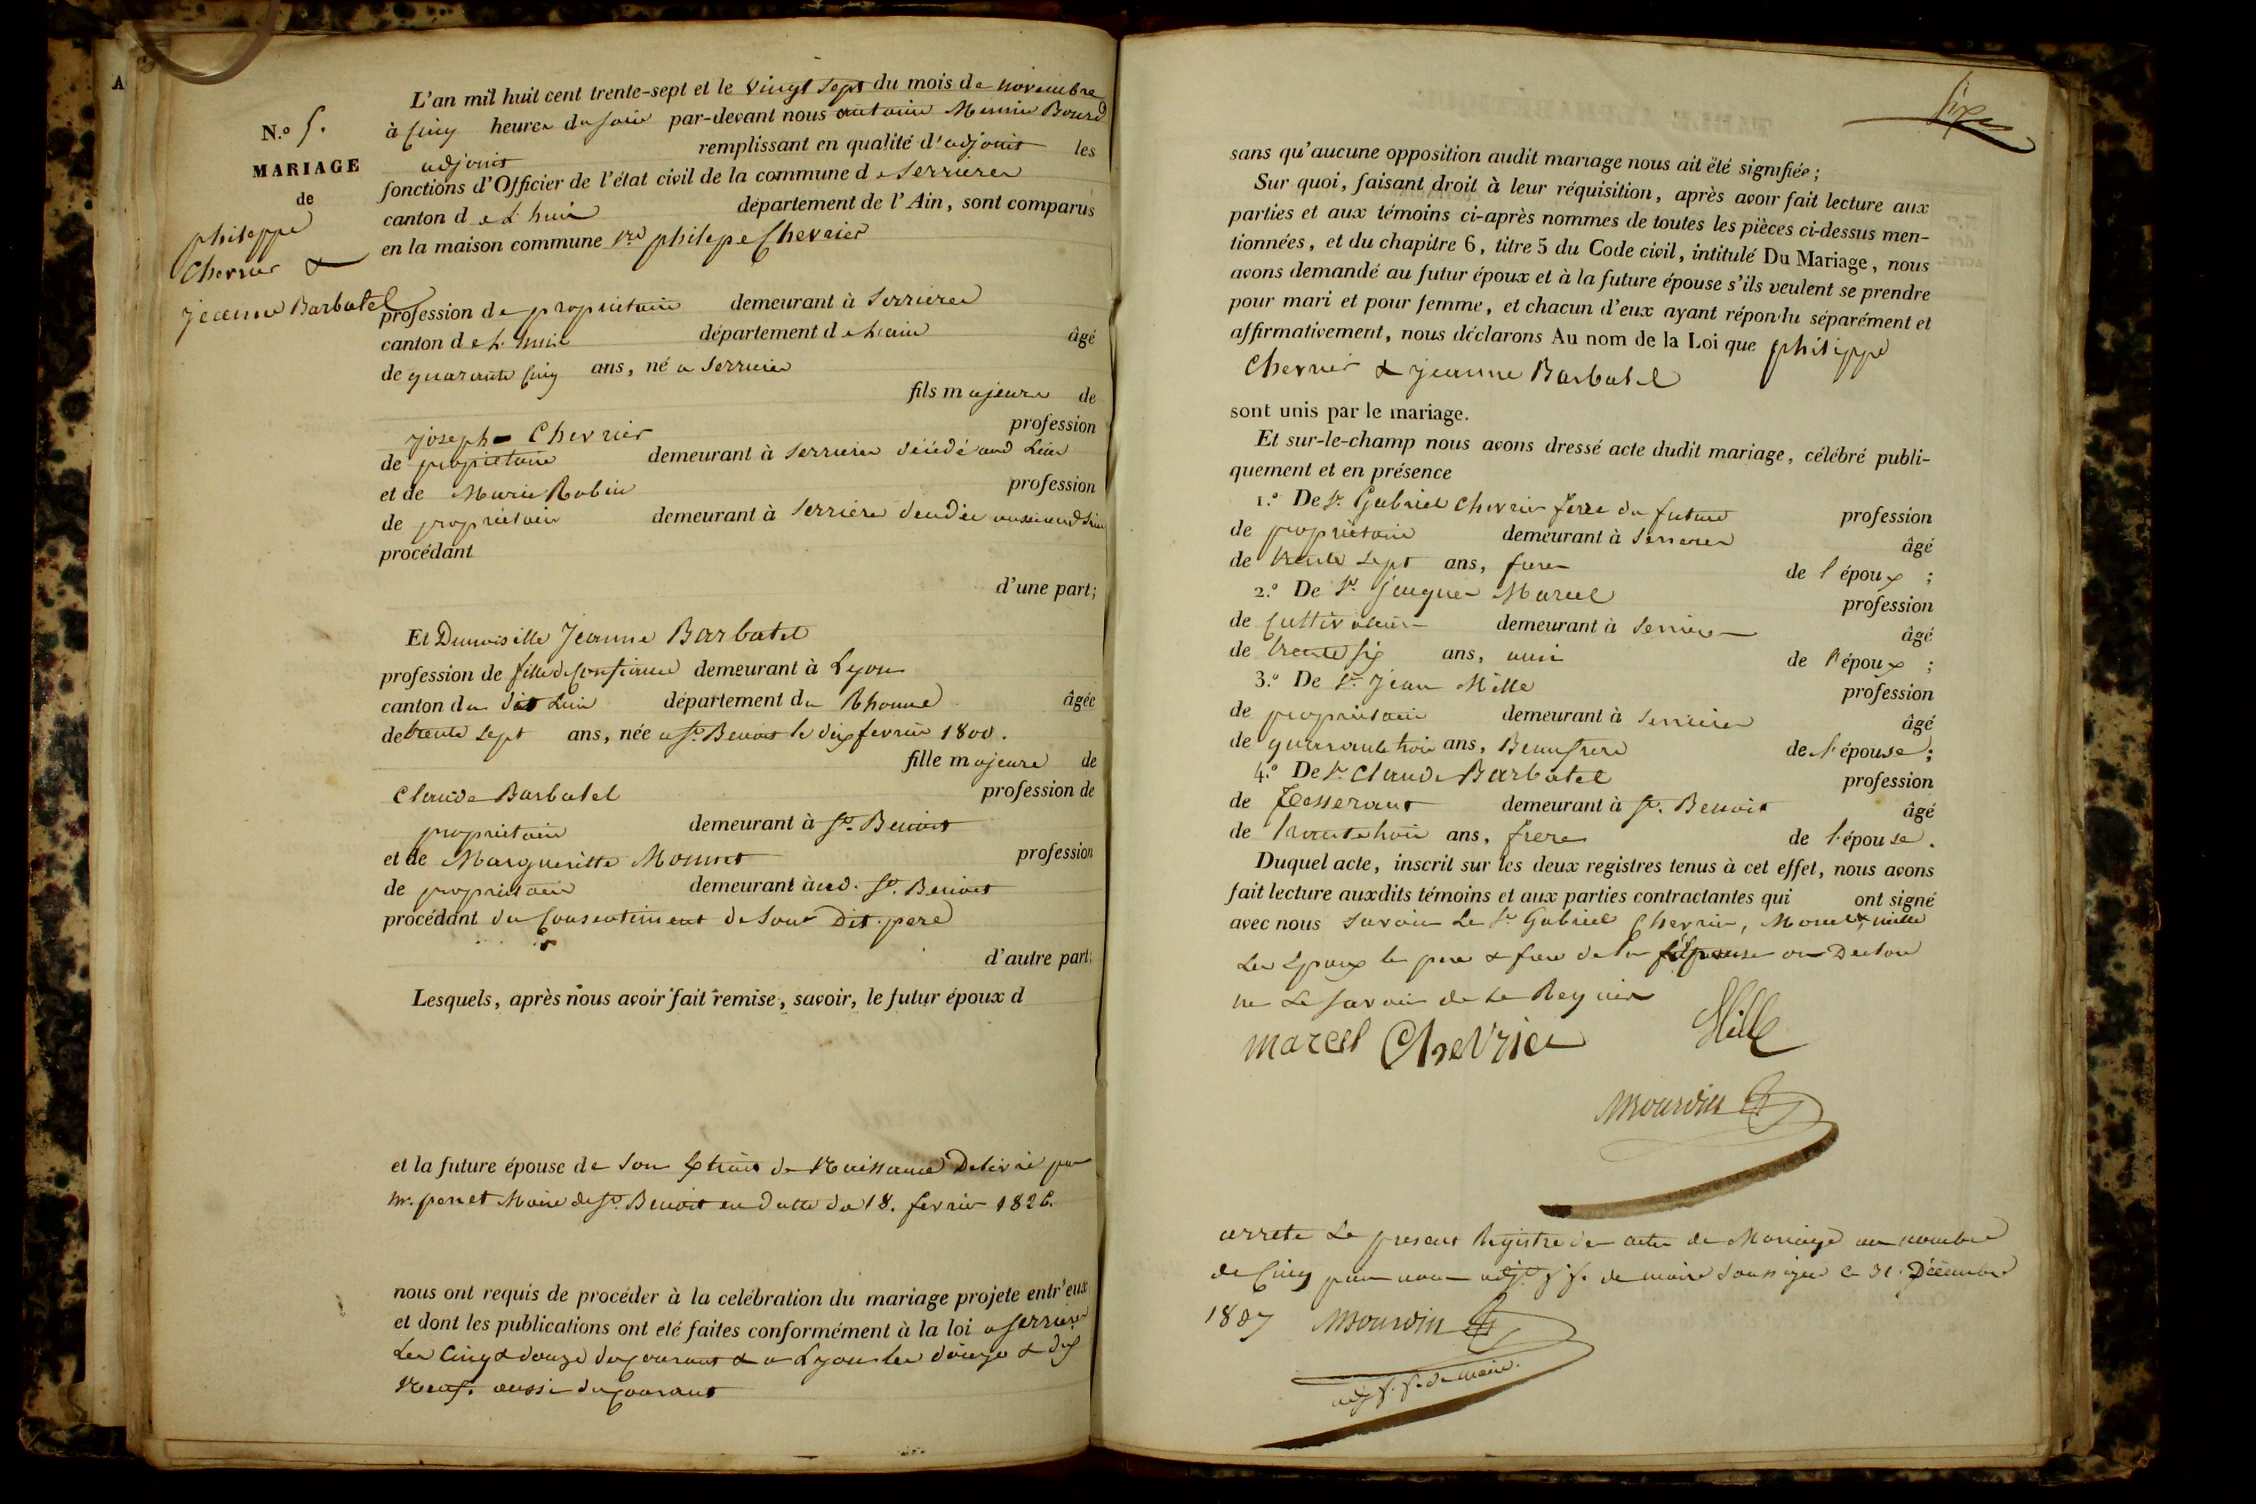 A
N.º 5.
MARIAGE
de
philippe
Chevrier &
jeanne Barbatel
L'an mil huit cent trente-sept et le vingt sept du mois de novembre
à Cinq heures du soir par-devant nous antoine
adjoint remplissant en qualité d'adjoint les
fonctions d'Officier de l'état civil de la commune de serrieres
canton de L huis département de l'Ain, sont comparus
en la maison commune philipe Chevrier
profession de propriétaire demeurant à serrieres
canton de L huis département de Lain âgé
de quarante cinq ans, né a serrieres
fils majeure de
joseph Chevrier profession
de propriétaire demeurant à serrieres décédé aud Lieu
et de Marie Robin profession
de propriétaire demeurant à serrieres décédée aussi aud Lieu
procédant
d'une part;
Et Demoiselle Jeanne Barbatel
profession de fille de Confiance demeurant à Lyon
canton du dit Lieu département du Rhonne âgée
de trente sept ans, née a St. Benoit le dix fevrier 1800.
fille majeure de
Claude Barbatel profession de
propriétaire demeurant à St. Benoit
et de Margueritte Monnet profession
de propriétaire demeurant à aud. St. Benoit
procédant du Consentiment de Son Dit pere
d'autre part;
Lesquels, après nous avoir fait remise, savoir, le futur époux d
et la future épouse de son Extrait de Naissance Delivré par
Mr. penet Maire de St. Benoit en datte du 18. fevrier 1826.
nous ont requis de procéder à la celébration du mariage projeté entr'eux
et dont les publications ont eté faites conformément à la loi a serrieres
Les Cinq & douze du Courant & a Lyon les douze & dix
Neuf. aussi du Courant
Six
sans qu'aucune opposition audit mariage nous ait été signifiée;
Sur quoi, faisant droit à leur réquisition, après avoir fait lecture aux
parties et aux témoins ci-après nommes de toutes les pièces ci-dessus men-
tionnées, et du chapitre 6, titre 5 du Code civil, intitulé Du Mariage, nous
avons demandé au futur époux et à la future épouse s'ils veulent se prendre
pour mari et pour femme, et chacun d'eux ayant répondu séparément et
affirmativement, nous déclarons Au nom de la Loi que philippe
Chevrier & jeanne Barbatel
sont unis par le mariage.
Et sur-le-champ nous avons dressé acte dudit mariage, célébré publi-
quement et en présence
1.º De Sr. Gabriel Chevrier frere du future profession
de propriétaire demeurant à serrieres âgé
de trente sept ans, frere de l'époux ;
2.º De Sr. Jacques Marcel profession
de Cultivateur demeurant à serrieres âgé
de trente six ans, ami de l'époux ;
3.º De Sr. Jean Mille profession
de propriétaire demeurant à serrieres âgé
de quarante trois ans, Beaufrere de l'épouse;
4.º De Sr. Claude Barbatel profession
de Tesserant demeurant à St. Benoit âgé
de trente trois ans, frere de l'épouse.
Duquel acte, inscrit sur les deux registres tenus à cet effet, nous avons
fait lecture auxdits témoins et aux parties contractantes qui ont signé
avec nous savoir Le Sr Gabriel Chevrier, Marcel & mille
Les Epoux le pere & frere de la épouse on Declare
ne Le savoir de ce Requis
marcel Chevrier Mille
Mourdin
arrete Le present Registre des actes de Mariage au nombre
de Cinq par nous adjt. ff. de maire soussigné le 31. Décembre
1837 Mourdin
adj. ff. de maire.